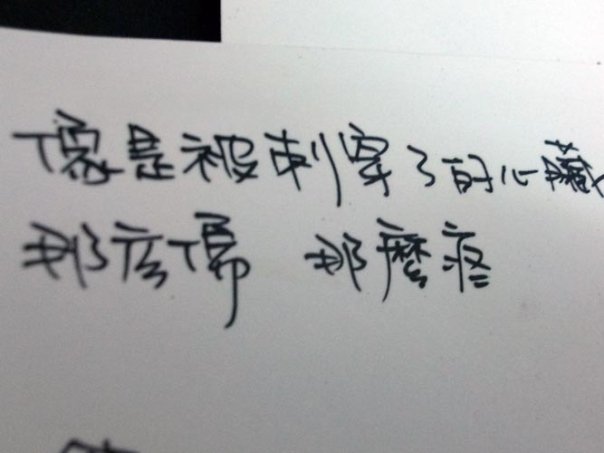 像是被刺穿了的心臟
那庅傷 那麼疼